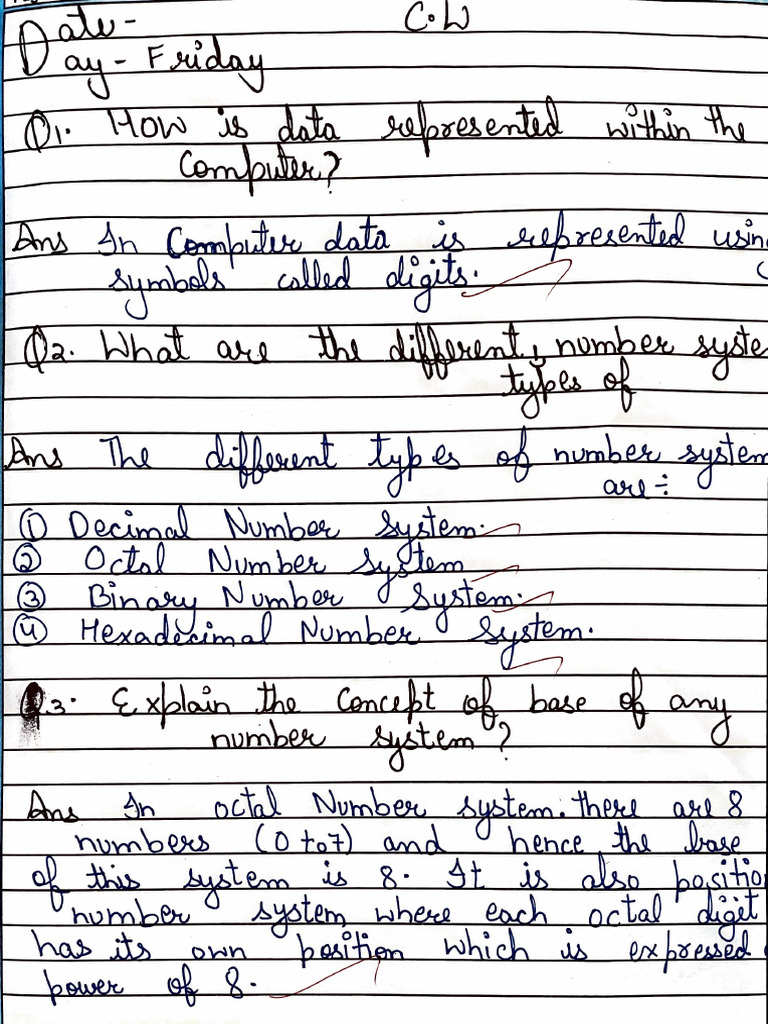 Date- C.W
Day- Friday
Q1. How is data represented within the
Computer?
Ans In Computer data is represented using
symbols called digits.
Q2. What are the different, number syste
types of
Ans The different types of number system
are÷
① Decimal Number System.
② Octal Number System
③ Binary Number System.
④ Hexadecimal Number System.
Q.3. Explain the Concept of base of any
number system?
Ans In octal Number system. there are 8
numbers (0 to 7) and hence the base
of this system is 8. It is also positio
number system where each octal digit
has its own position which is expressed
power of 8.